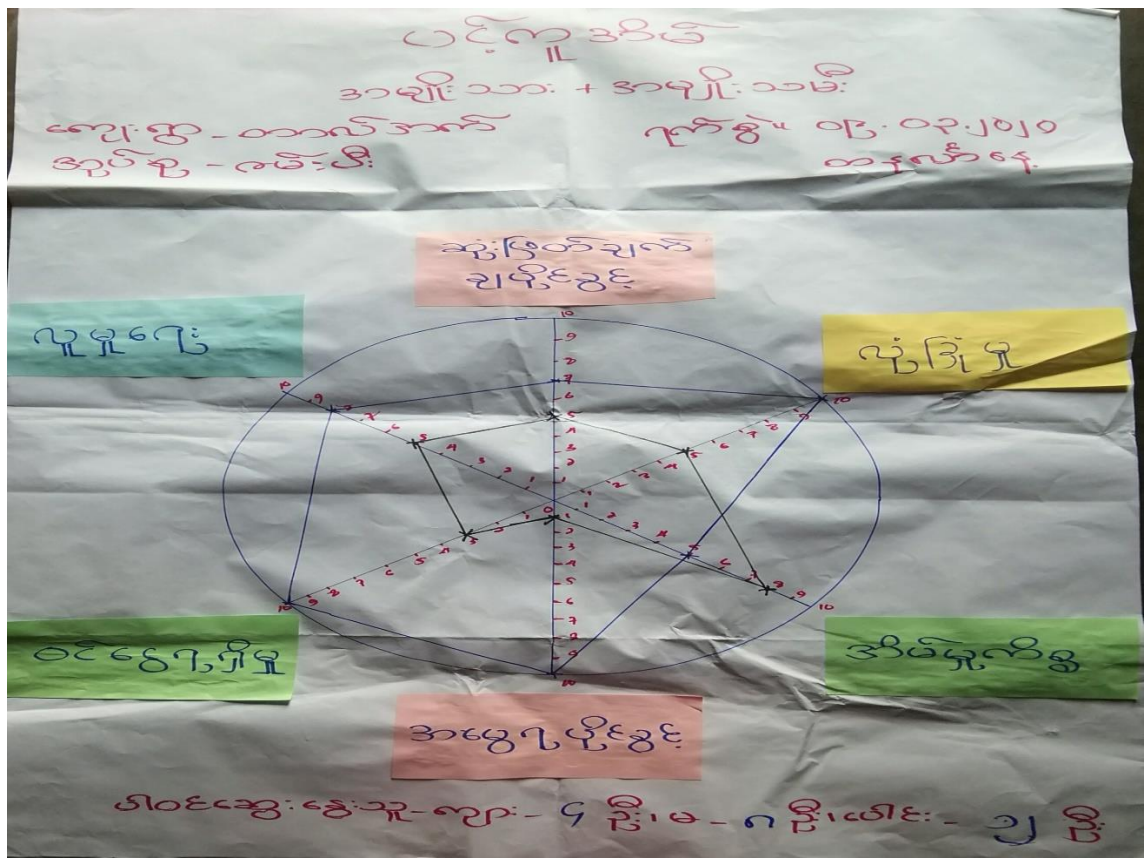 ပင့်ကူအိမ်
အမျိုးသား + အမျိုးသမီး
ကျေးရွာ - တာလ်အက်
ရက်စွဲ။ ၀၉.၀၃.၂၀၂၀
အုပ်စု - စမ်းပီး
တနင်္လာနေ့
ဆုံးဖြတ်ချက်
ချပိုင်ခွင့်
လူမှုရေး
လုံခြုံမှု
10
9
8
7
6
5
4
3
2
1
0
ဝင်ငွေရရှိမှု
အိမ်မှုကိစ္စ
အမွေရပိုင်ခွင့်
ပါဝင်ဆွေးနွေးသူ - ကျား - ၄ ဦး၊ မ - ၈ ဦး၊ ပေါင်း - ၁၂ ဦး